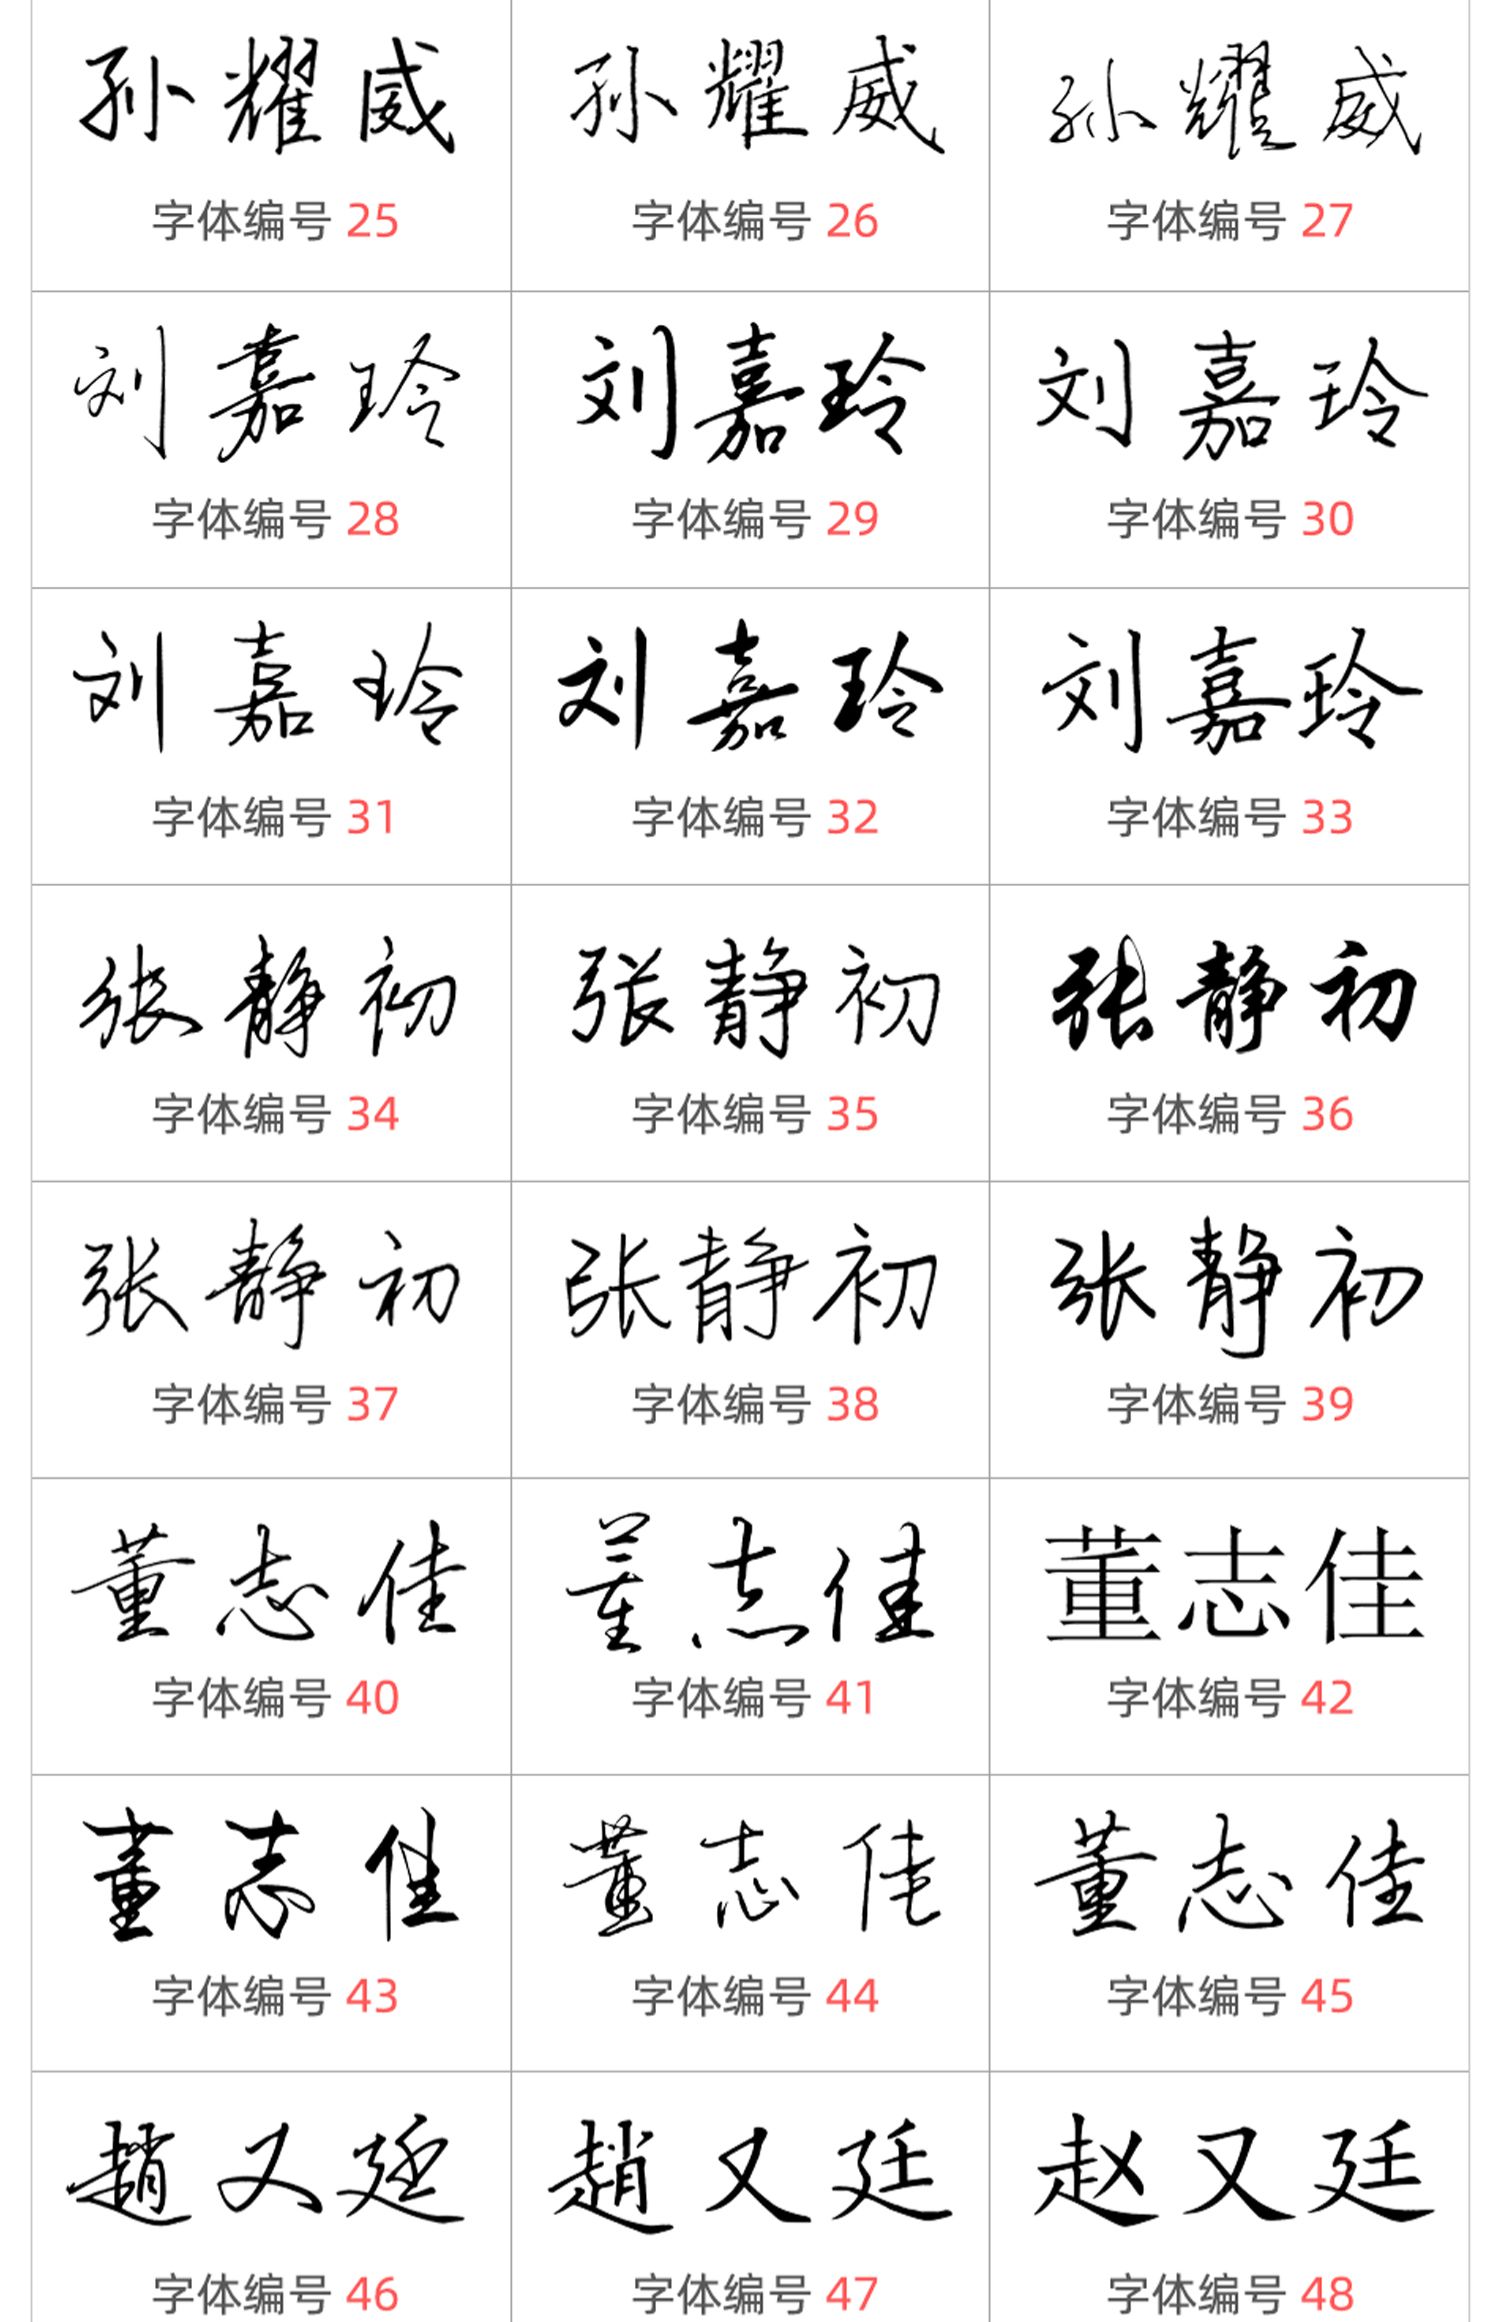 孙耀威 孙耀威 孙耀威
字体编号 25 字体编号 26 字体编号 27
刘嘉玲 刘嘉玲 刘嘉玲
字体编号 28 字体编号 29 字体编号 30
刘嘉玲 刘嘉玲 刘嘉玲
字体编号 31 字体编号 32 字体编号 33
张静初 张静初 张静初
字体编号 34 字体编号 35 字体编号 36
张静初 张静初 张静初
字体编号 37 字体编号 38 字体编号 39
董志佳 董志佳 董志佳
字体编号 40 字体编号 41 字体编号 42
董志佳 董志佳 董志佳
字体编号 43 字体编号 44 字体编号 45
趙又廷 趙又廷 赵又廷
字体编号 46 字体编号 47 字体编号 48